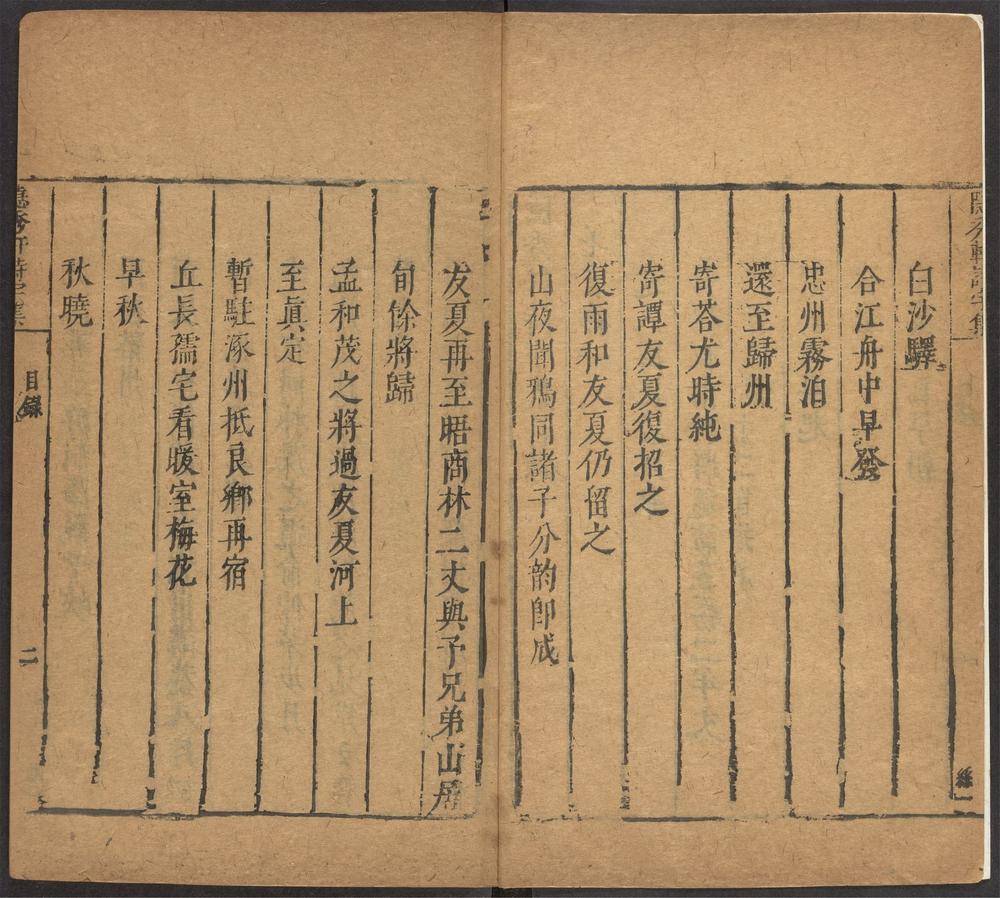 白沙驛
合江舟中早發
忠州霧泊
還至歸州
寄荅尤時純
寄譚友夏復招之
復雨和友夏仍留之
山夜聞鴉同諸子分韵卽成
友夏再至晤商林二丈與予兄弟山居
旬餘將歸
孟和茂之將過友夏河上
至眞定
暫駐涿州抵良鄉再宿
丘長孺宅看暖室梅花
早秋
秋曉
目錄
二